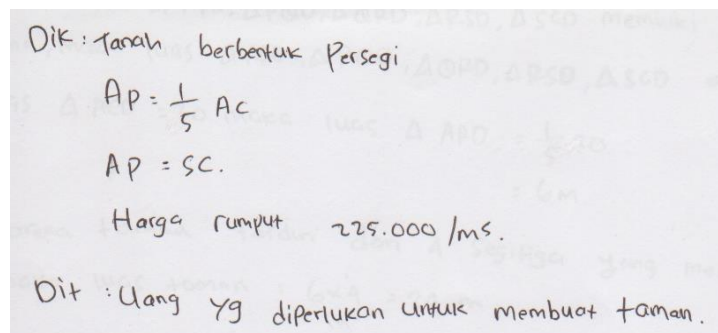 Dik : Tanah berbentuk Persegi
AP = 1/5 AC
AP = SC.
Harga rumput 225.000 /ms.
Dit : Uang yg diperlukan untuk membuat taman.